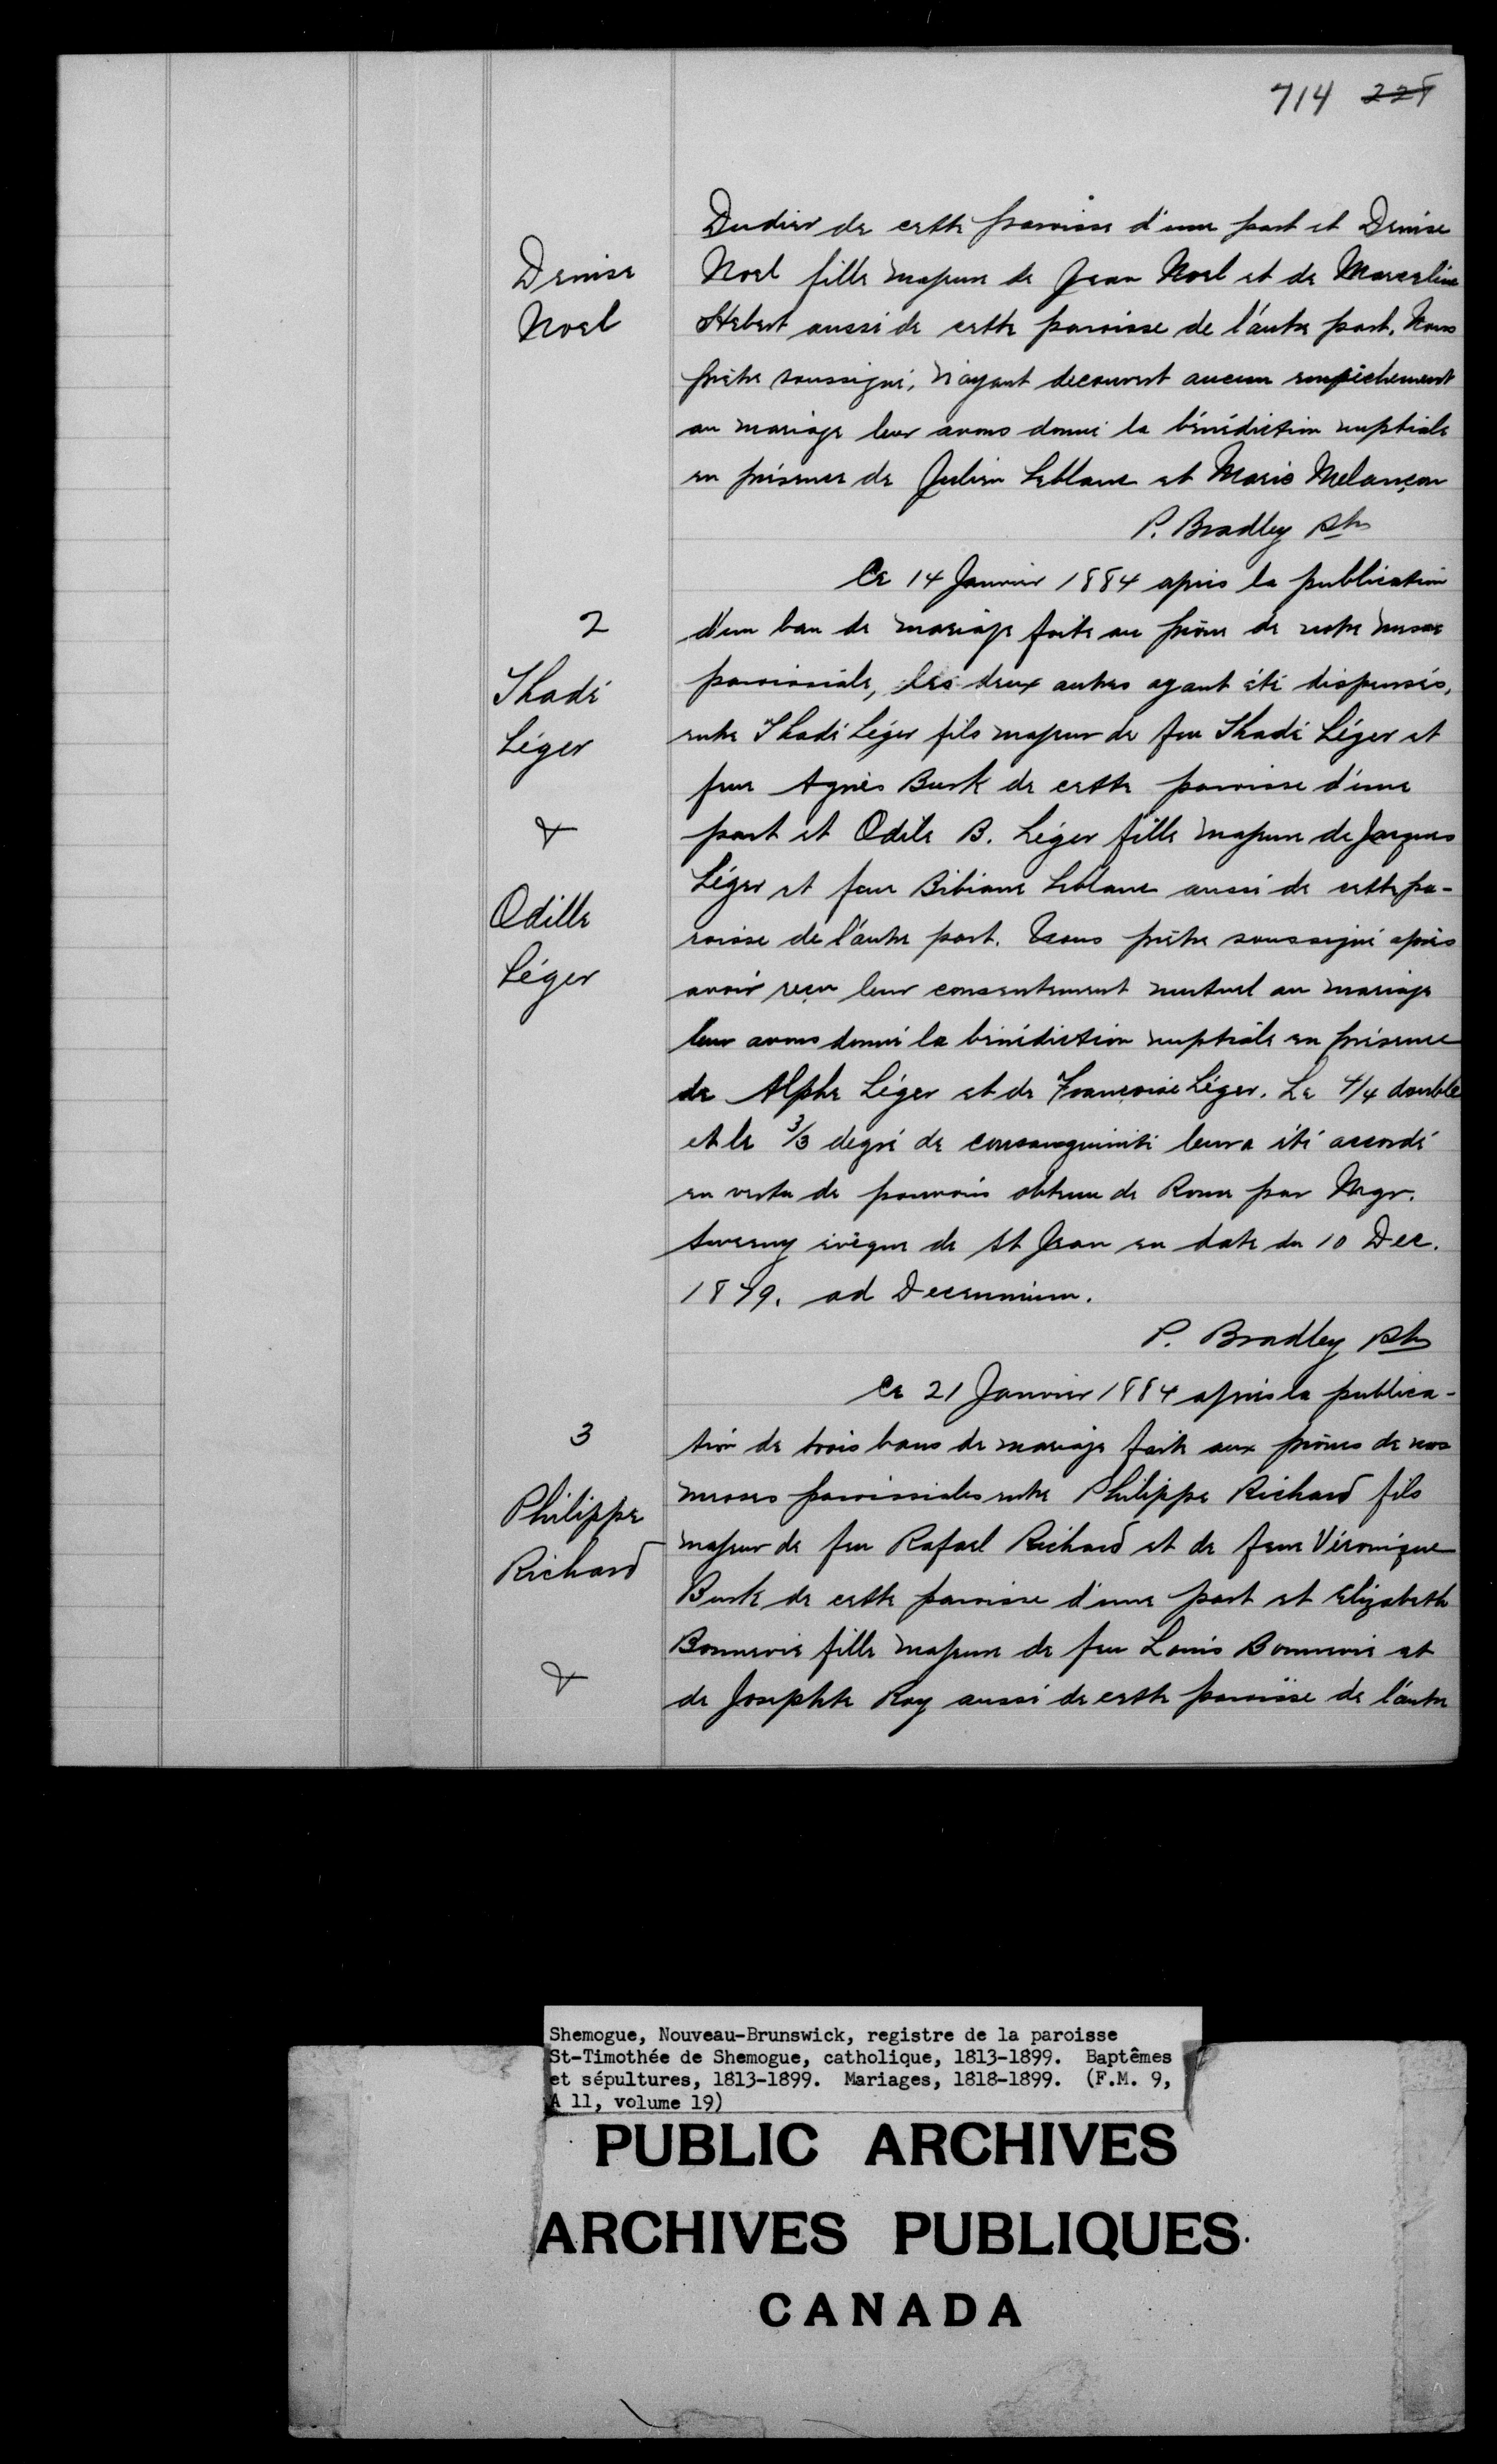 714 228
Dudier de cette paroisse d'une part et Denise
Denise
Noel fille majeure de Jean Noel et de Marceline
Noel
Hebert aussi de cette paroisse de l'autre part. Nous
prêtre soussigné, n'ayant decouvert aucun empêchement
au mariage leur avons donné la bénédiction nuptiale
en présence de Julien Leblanc et Marie Melançon
P. Bradley Ptre
Ce 14 Janvier 1884 après la publication
2
d'un ban de mariage faite au prône de notre messe
paroissiale, les deux autres ayant été dispensés,
Thadé
entre Thadé Léger fils majeur de feu Thadé Léger et
Léger
feue Agnès Burk de cette paroisse d'une
&
part et Odile B. Léger fille majeure de Jacques
Léger et feue Bibiane Leblanc aussi de cette pa-
Odille
roisse de l'autre part. Nous prêtre soussigné après
Léger
avoir reçu leur consentement mutuel au mariage
leur avons donné la bénédiction nuptiale en présence
de Alphe Léger et de Françoise Léger. Le 4/4 double
et le 3/3 degré de consanguinité leur a été accordé
en vertu de pouvoirs obtenu de Rome par Mgr.
Sweeny évèque de St Jean en date du 10 Dec.
1879. ad Decennium.
P. Bradley Ptre
Ce 21 Janvier 1884 après la publica-
3
tion de trois bans de mariage faite aux prônes de nos
messes paroissiales entre Philippe Richard fils
Philippe
majeur de feu Rafael Richard et de feue Véronique
Richard
Burk de cette paroisse d'une part et Elizabeth
Bonnevie fille majeure de feu Louis Bonnevie et
&
de Josephte Roy aussi de cette paroisse de l'autre
Shemogue, Nouveau-Brunswick, registre de la paroisse
St-Timothée de Shemogue, catholique, 1813-1899. Baptêmes
et sépultures, 1813-1899. Mariages, 1818-1899. (F.M. 9,
A 11, volume 19)
PUBLIC ARCHIVES
ARCHIVES PUBLIQUES
CANADA